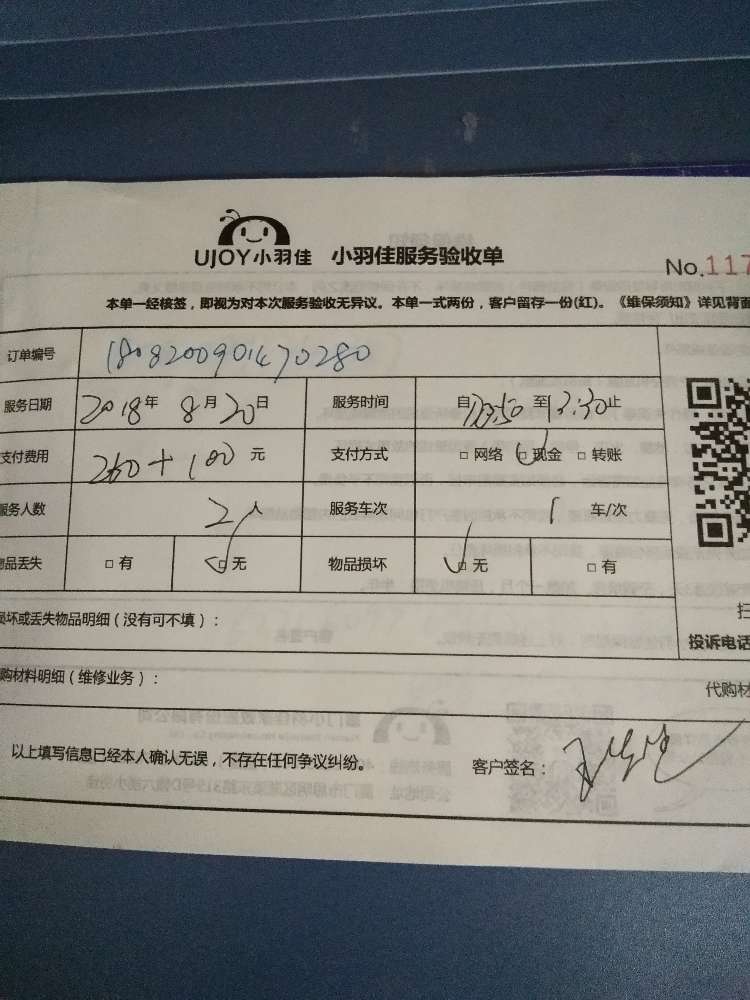 UJOY小羽佳 小羽佳服务验收单
No.117
本单一经核签，即视为对本次服务验收无异议。本单一式两份，客户留存一份(红)。《维保须知》详见背面
订单编号 1808200901470280
服务日期 2018年 8月20日 服务时间 自 至12:30止
支付费用 260+100元 支付方式 □ 网络 □ 现金 □ 转账
服务人数 2人 服务车次 1 车/次
物品丢失 □ 有 □ 无 物品损坏 □ 无 □ 有
损坏或丢失物品明细（没有可不填）：
扫
投诉电话
购材料明细（维修业务）：
代购材
以上填写信息已经本人确认无误，不存在任何争议纠纷。 客户签名：